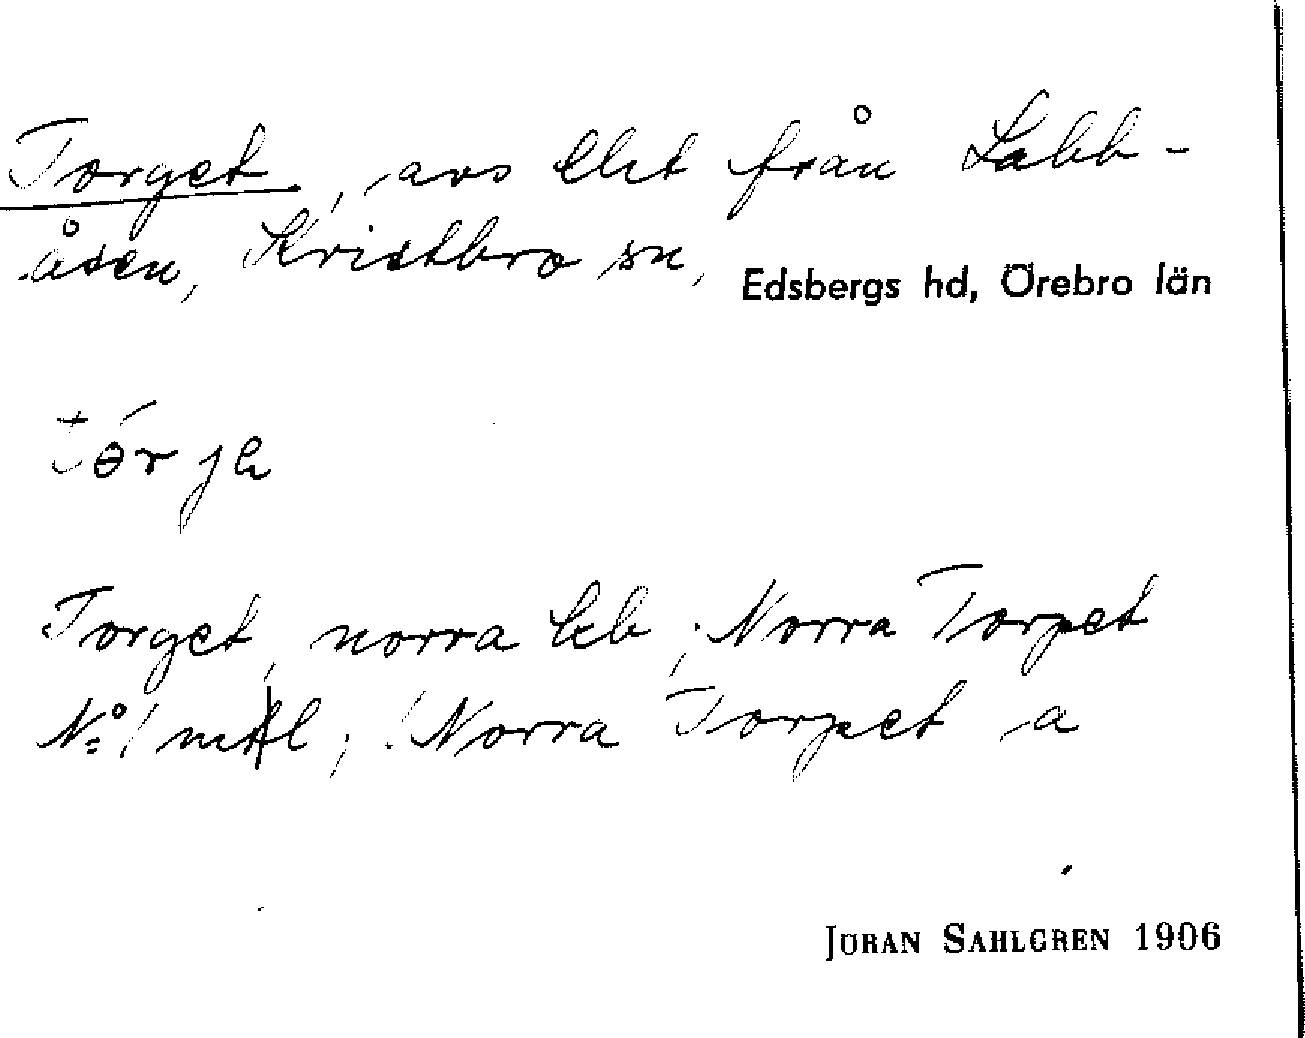 Torget, avs lht från Labb-
åsen, Kvistbro sn, Edsbergs hd, Örebro län
tɵ́rjɘ
Torget, norra lib; Norra Torpet
No 1 mtl; Norra Torpet a
JÖRAN SAHLGREN 1906